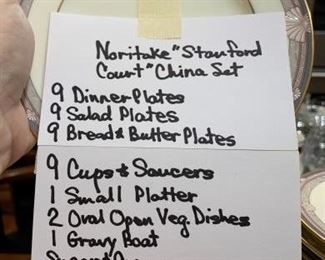 Noritake "Stanford
Court" China Set
9 Dinner Plates
9 Salad Plates
9 Bread & Butter Plates
9 Cups & Saucers
1 Small Platter
2 Oval Open Veg. Dishes
1 Gravy Boat